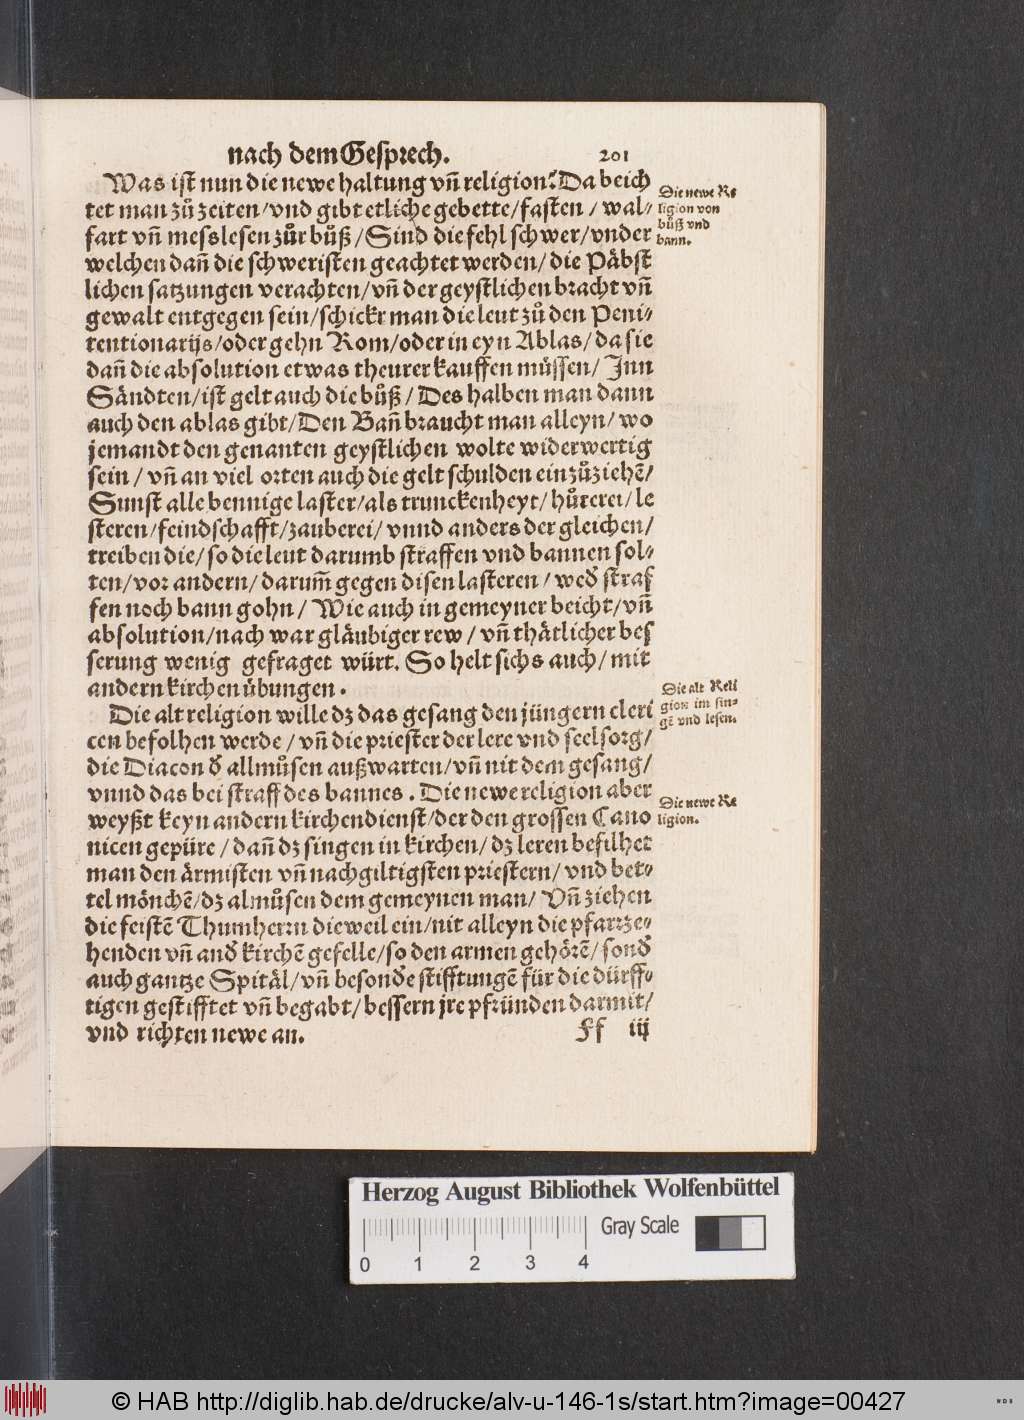 nach dem Gesprech. 201
Was ist nun die newe haltung vñ religion? Da beich
tet man zů zeiten/vnd gibt etliche gebette/fasten / wal-
fart vñ messlesen zůr bůß / Sind die fehl schwer/vnder
welchen dañ die schweristen geachtet werden/ die Påbst
lichen satzungen verachten/vñ der geystlichen bracht vñ
gewalt entgegen sein/schickt man die leut zů den Peni-
tentionarijs/oder gehn Rom/oder in eyn Ablas/ da sie
dañ die absolution etwas theurer kauffen müssen/ Inn
Såndten/ist gelt auch die bůß / Des halben man dann
auch den ablas gibt/Den Bañ braucht man alleyn/ wo
jemandt den genanten geystlichen wolte widerwertig
sein / vñ an viel orten auch die gelt schulden einzůziehẽ/
Sunst alle bennige laster/als trunckenheyt/hůrerei/ le
steren/feindschafft/zauberei/ vnnd anders der gleichen/
treiben die/so die leut darumb straffen vnd bannen sol-
ten/vor andern/darum̃ gegen disen lasteren / wed̃ straf
fen noch bann gohn / Wie auch in gemeyner beicht/vñ
absolution/nach war glåubiger rew / vñ thåtlicher bes
serung wenig gefraget würt. So helt sichs auch/ mit
andern kirchen übungen.
Die alt religion wille dz das gesang den jüngern cleri
cen befolhen werde / vñ die priester der lere vnd seelsorg/
die Diacon d̃ allmůsen außwarten/vñ nit dem gesang/
vnnd das bei straff des bannes. Die newe religion aber
weyßt keyn andern kirchendienst/der den grossen Cano
nicen gepüre / dañ dz singen in kirchen/ dz leren befilhet
man den årmisten vñ nachgiltigsten priestern/ vnd bet-
tel mönchẽ/dz almůsen dem gemeynen man/ Vñ ziehen
die feistẽ Thumherrn dieweil ein/nit alleyn die pfarrze-
henden vñ and̃ kirchẽ gefelle/so den armen gehörẽ/ sond̃
auch gantze Spitål/vñ besond̃e stifftungẽ für die dürff-
tigen gestifftet vñ begabt/ bessern jre pfründen darmit/
vnd richten newe an. Ff iij
Die newe Re
ligion von
bůß vnd
bann.
Die alt Reli
gion im sin-
gẽ vnd lesen.
Die newe Re
ligion.
Herzog August Bibliothek Wolfenbüttel
Gray Scale
0 1 2 3 4
© HAB http://diglib.hab.de/drucke/alv-u-146-1s/start.htm?image=00427